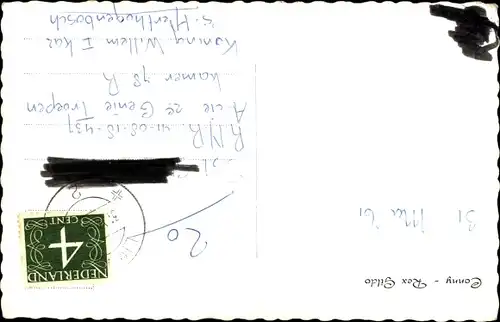 Conny - Rex Gildo
31 Mei '61
20
NEDERLAND
4
CENT
R.N.R. 41-08-18-437
A cie 2e Genie Troepen
kamer 78 R
Koning Willem I kaz
's-Herthogenbosch